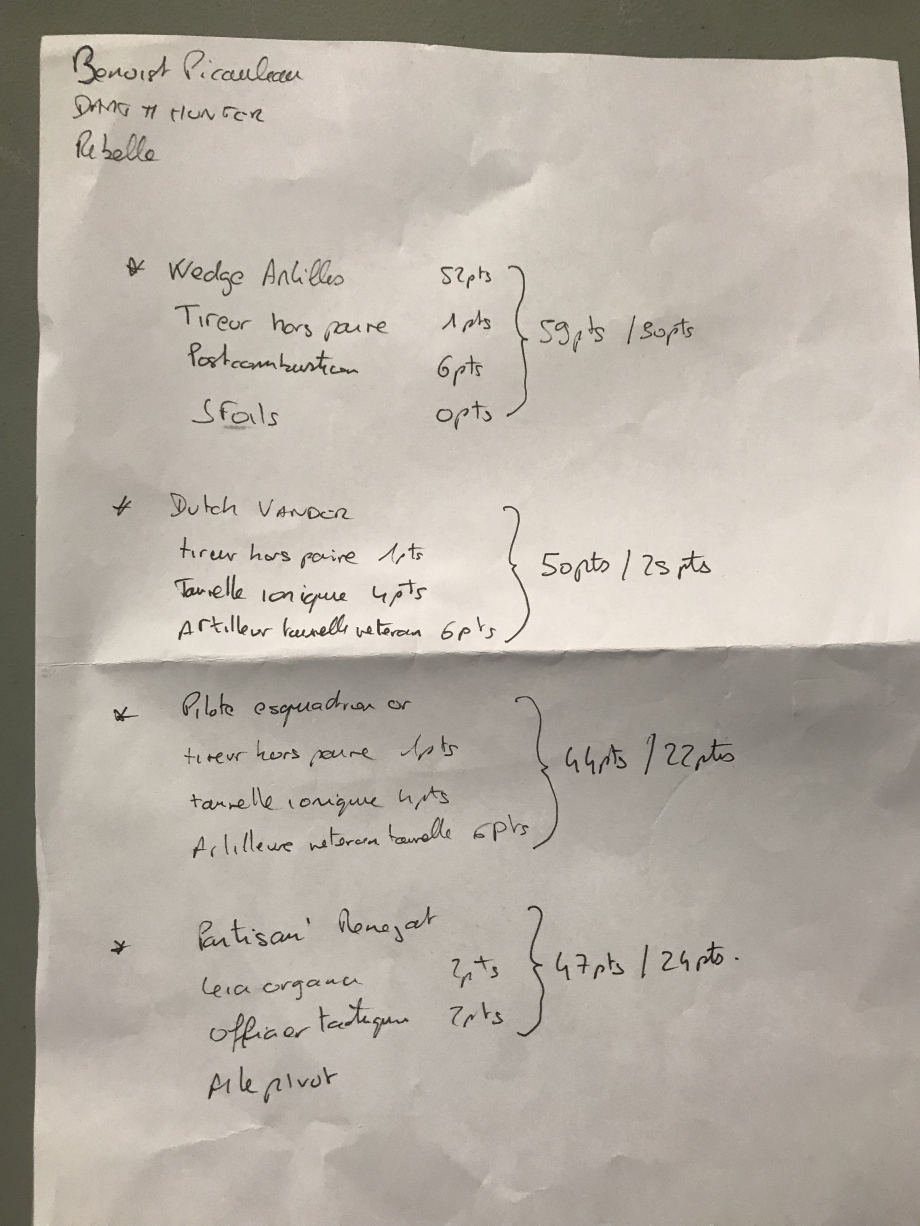 Benoist Picauleau
Rebelle
* Wedge Antilles 52pts
Tireur hors paire 1pts
59pts / 30pts
Postcombustion 6pts
Sfoils 0pts
* Dutch VANDER
tireur hors paire 1pts
50pts / 25pts
Tourelle ionique 4pts
Artilleur tourelle veteran 6pts
* Pilote esquadron or
tireur hors paire 1pts
44pts / 22pts
tourelle ionique 4pts
Artilleure veteran tourelle 6pts
* Partisan Renegat
Leia organa 2pts
47pts / 24pts.
Officier tactique 2pts
Aile pivot